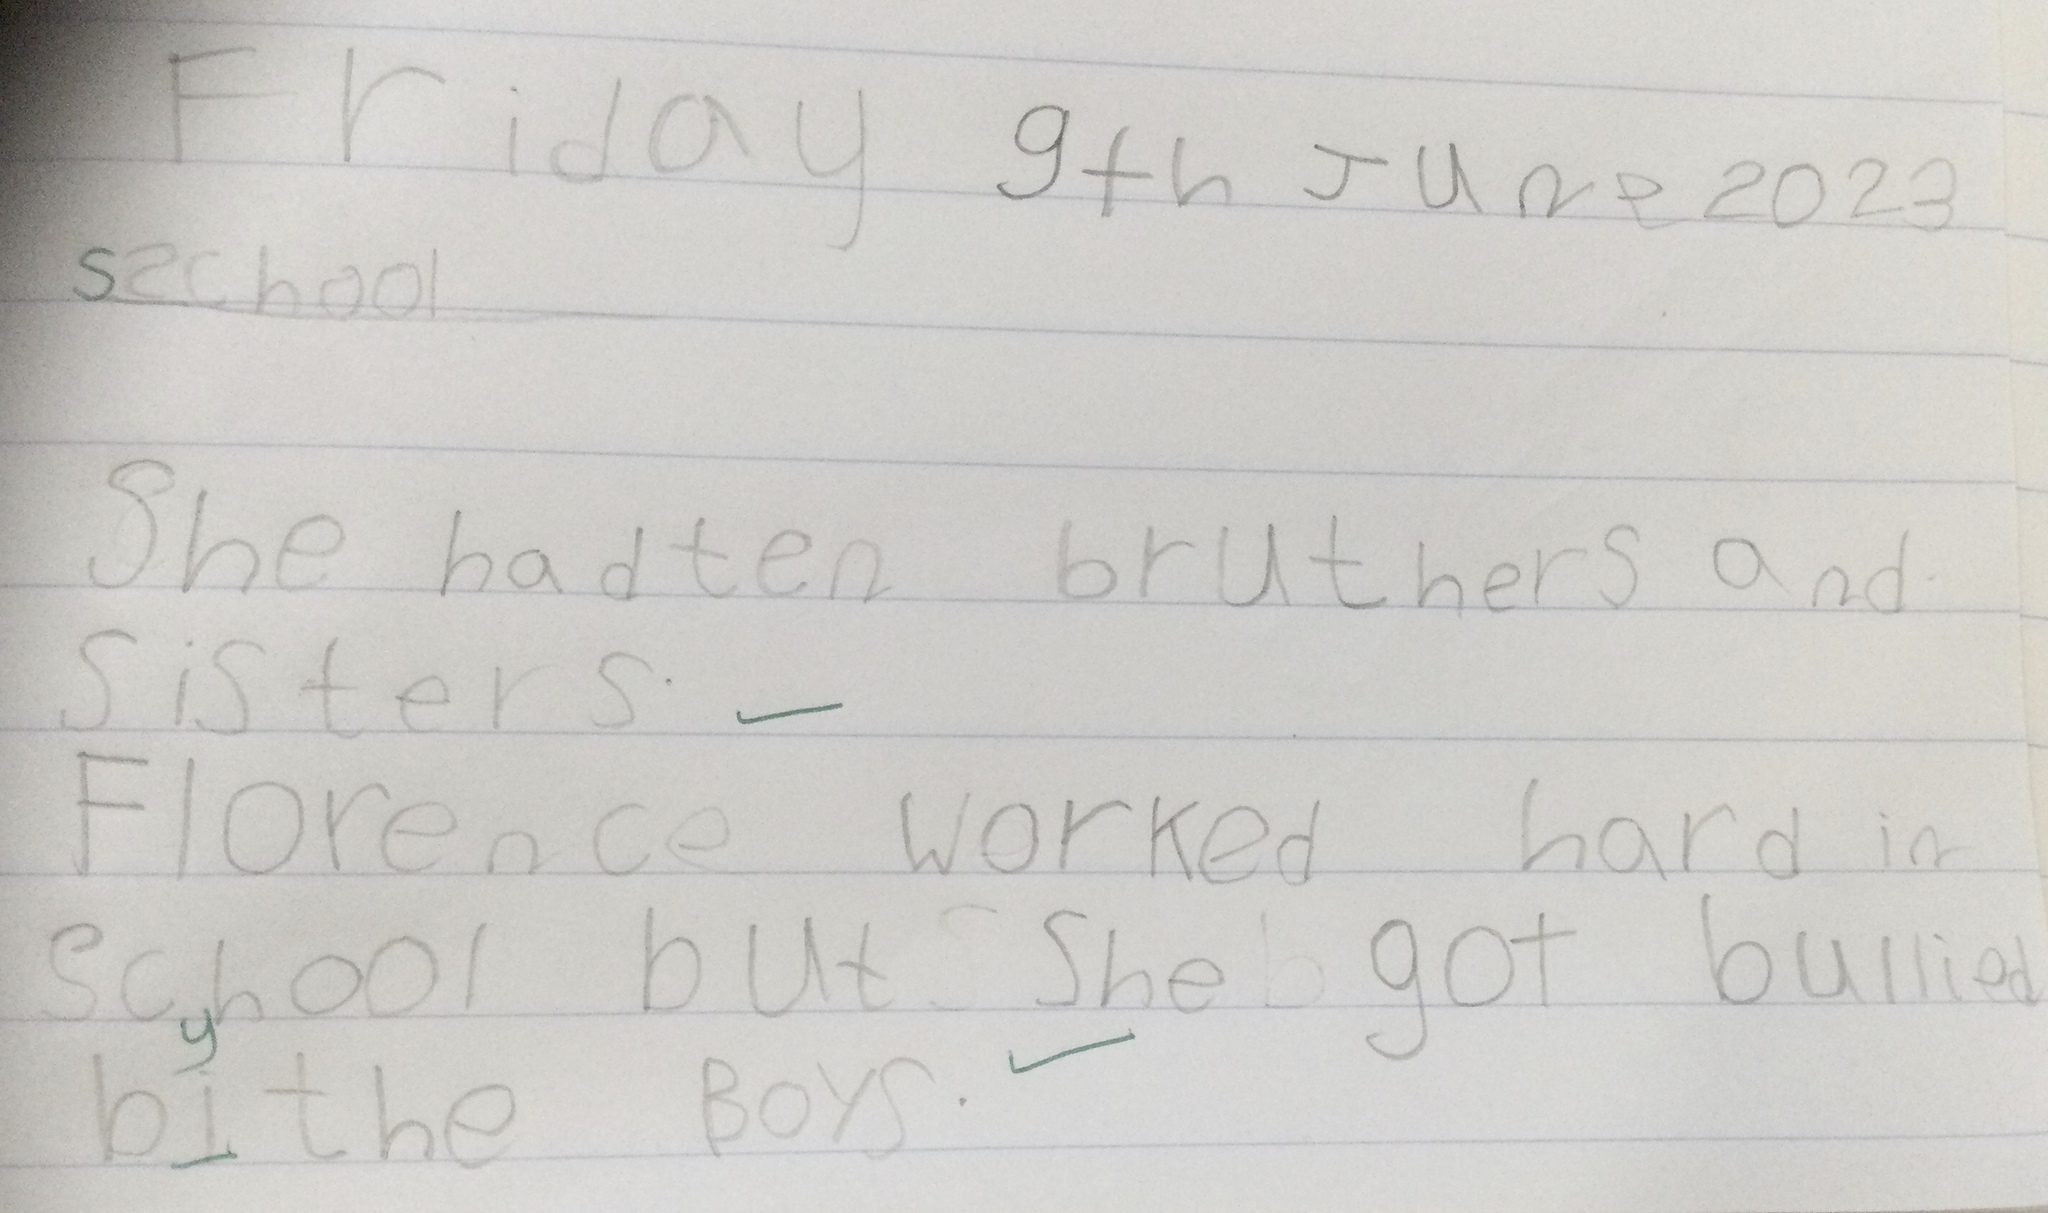 Friday 9th June 2023
school
She had ten bruthers and
sisters.
Florence worked hard in
school but she got bullied
y
bi the Boys.